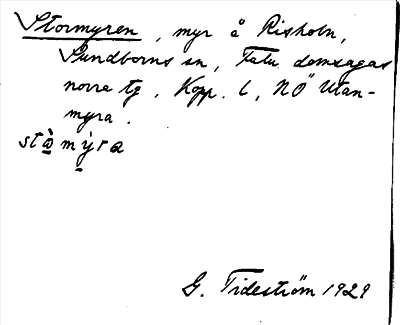 Stormyren, myr å Risholn,
Sundborns sn, Falu domsagas
norre tg. Kopp. l, NÖ Utan-
myra.
stò̱mỳ̱ra
G. Tideström 1929